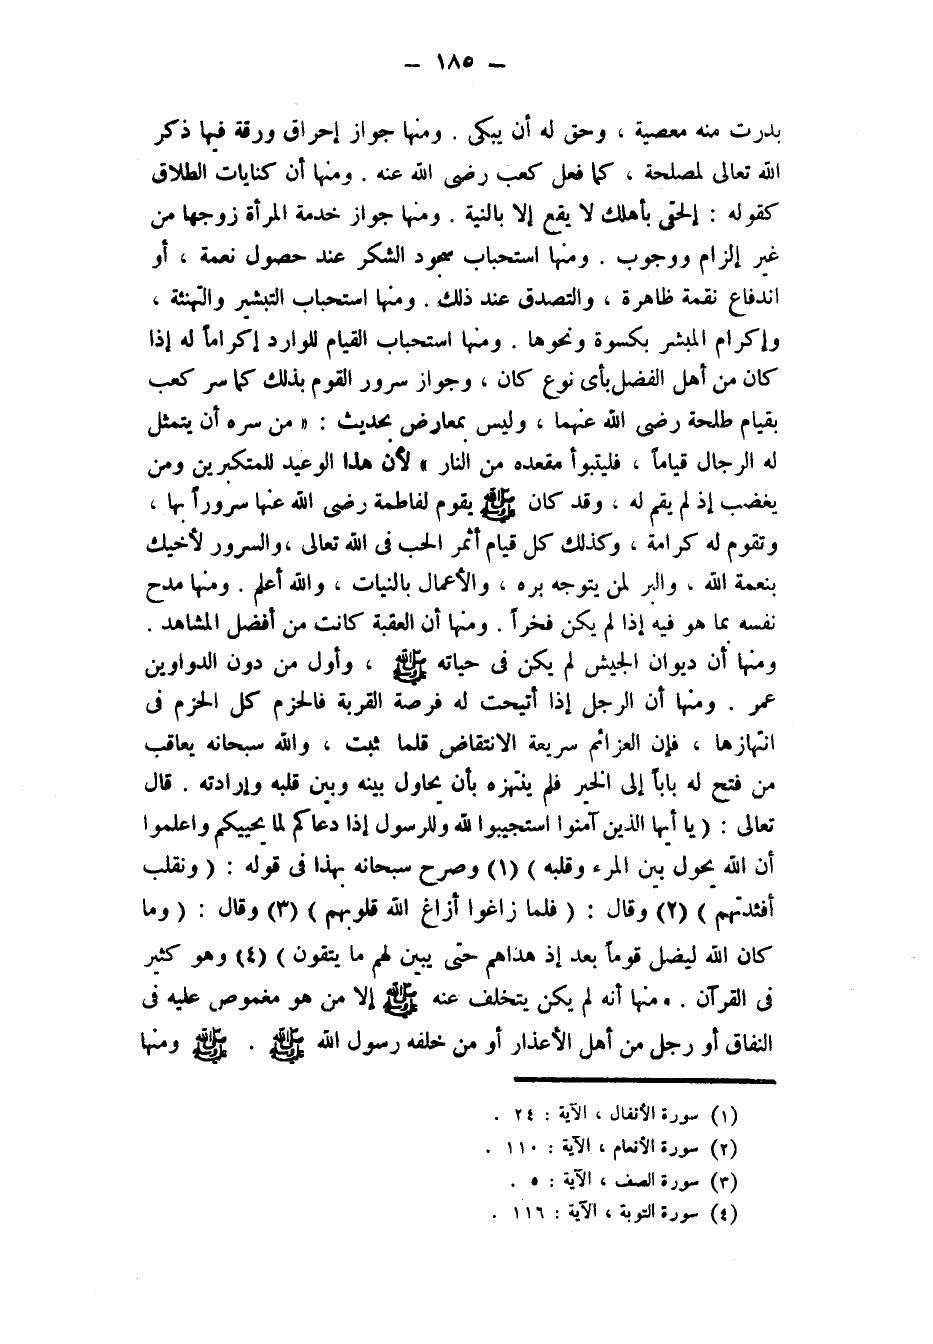 — ١٨٥ —
بدرت منه معصية ، وحق له أن يبكى . ومنها جواز إحراق ورقة فيها ذكر
الله تعالى لمصلحة ، كما فعل كعب رضى الله عنه . ومنها أن كنايات الطلاق
كقوله : إلحقى بأهلك لا يقع إلا بالنية . ومنها جواز خدمة المرأة زوجها من
غير إلزام ووجوب . ومنها استحباب سجود الشكر عند حصول نعمة ، أو
اندفاع نقمة ظاهرة ، والتصدق عند ذلك . ومنها استحباب التبشير والتهنئة ،
وإكرام المبشر بكسوة ونحوها . ومنها استحباب القيام للوارد إكراماً له إذا
كان من أهل الفضل بأى نوع كان ، وجواز سرور القوم بذلك كما سر كعب
بقيام طلحة رضى الله عنهما ، وليس بمعارض بحديث : « من سره أن يتمثل
له الرجال قياماً ، فليتبوأ مقعده من النار » لأن هذا الوعيد للمتكبرين ومن
يغضب إذ لم يقم له ، وقد كان ﷺ يقوم لفاطمة رضى الله عنها سروراً بها ،
وتقوم له كرامة ، وكذلك كل قيام أثمر الحب فى الله تعالى ، والسرور لأخيك
بنعمة الله ، والبر لمن يتوجه بره ، والأعمال بالنيات ، والله أعلم . ومنها مدح
نفسه بما هو فيه إذا لم يكن فخراً . ومنها أن العقبة كانت من أفضل المشاهد .
ومنها أن ديوان الجيش لم يكن فى حياته ﷺ ، وأول من دون الدواوين
عمر . ومنها أن الرجل إذا أتيحت له فرصة القربة فالحزم كل الحزم فى
انتهازها ، فإن العزائم سريعة الانتقاض قلما ثبت ، والله سبحانه يعاقب
من فتح له باباً إلى الخير فلم ينتهزه بأن يحاول بينه وبين قلبه وإرادته . قال
تعالى : ( يا أيها الذين آمنوا استجيبوا لله وللرسول إذا دعاكم لما يحييكم واعلموا
أن الله يحول بين المرء وقلبه ) (١) وصرح سبحانه بهذا فى قوله : ( ونقلب
أفئدتهم ) (٢) وقال : ( فلما زاغوا أزاغ الله قلوبهم ) (٣) وقال : ( وما
كان الله ليضل قوماً بعد إذ هداهم حتى يبين لهم ما يتقون ) (٤) وهو كثير
فى القرآن . ومنها أنه لم يكن يتخلف عنه ﷺ إلا من هو مغموص عليه فى
النفاق أو رجل من أهل الأعذار أو من خلفه رسول الله ﷺ . ﷺ ومنها
(١) سورة الأنفال ، الآية : ٢٤ .
(٢) سورة الأنعام ، الآية : ١١٠ .
(٣) سورة الصف ، الآية : ٥ .
(٤) سورة التوبة ، الآية : ١١٦ .